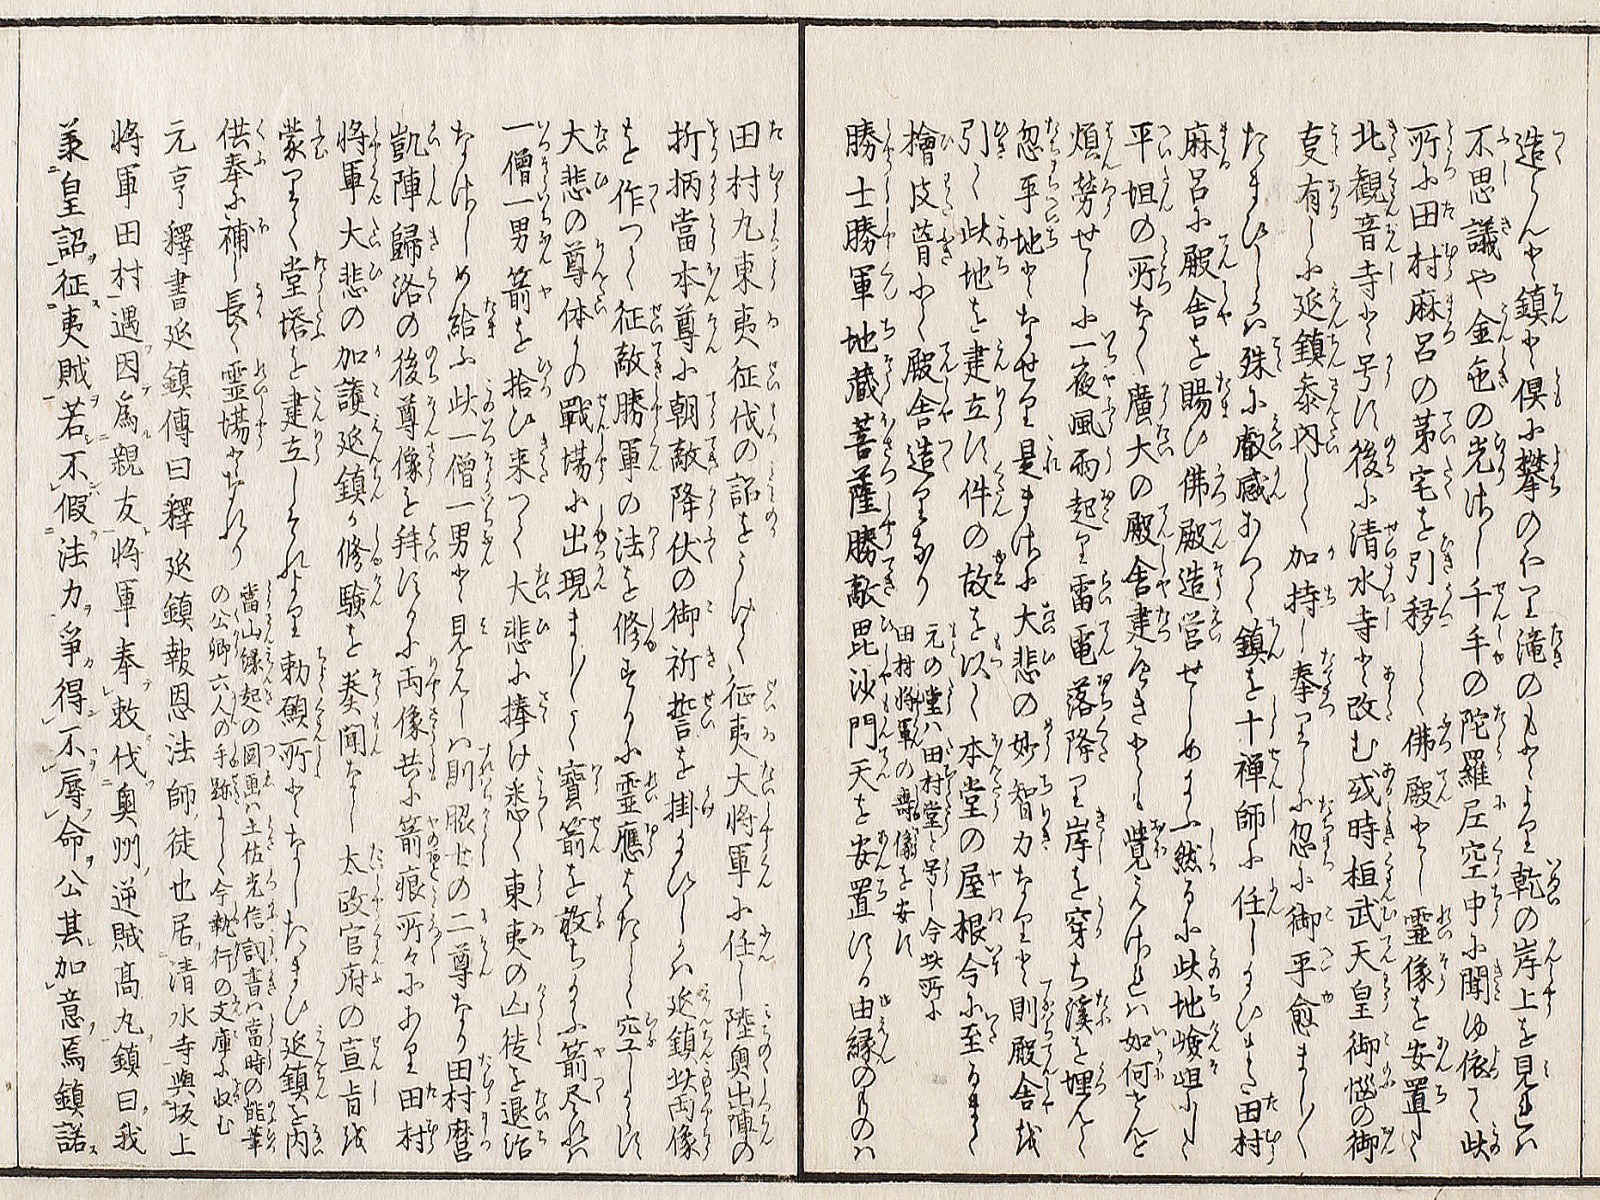 造らんと鎮と倶に攀のぼり滝のもとより乾の岸上を見れば
不思議や金色の光さし千手の陀羅尼空中に聞ゆ依て此
所に田村麻呂の第宅を引移して佛殿とし霊像を安置し
北観音寺と号す後に清水寺と改む或時桓武天皇御悩の御
事有しに延鎮参内して加持し奉りしに忽に御平愈まし〳〵
たまひしかば殊に叡感あつて鎮を十禅師に任じ給ひまた田村
麻呂に殿舎を賜ひ佛殿造営せしめ給ふ然るに此地嶮岨にして
平坦の所なく廣大の殿舎建べきとも覚えざれば如何せんと
煩労せしに一夜風雨起り雷電落降り岸を穿ち溪を埋んて
忽平地となせり是まさに大悲の妙智力なりと則殿舎を
引て此地を建立す件の故を以て本堂の屋根今に至るまで
檜皮葺にて殿舎造りなり
元の堂ハ田村堂と号し今此所に
田村将軍の壽像を安ず
勝士勝軍地蔵菩薩勝敵毘沙門天を安置する由縁のものハ
田村丸東夷征伐の詔をうけて征夷大将軍に任し陸奥出陣の
折柄當本尊に朝敵降伏の御祈誓を掛給ひしかバ延鎮此両像
を作つて征敵勝軍の法を修するに霊應あらたにして空しからず
大悲の尊体かの戦場に出現まし〳〵て寳箭を放ち給ふ箭尽れバ
一僧一男箭を拾ひ来つて大悲に捧け悉く東夷の凶徒を退治
なさしめ給ふ此一僧一男と見えしハ則脇士の二尊なり田村麿
凱陣歸洛の後尊像を拜するに両像共に箭痕所々にあり田村
将軍大悲の加護延鎮が修験を奏聞なし太政官府の宣旨を
蒙りて堂塔を建立しそれより勅願所となしたまひ延鎮を内
供奉に補し長く霊場となれり
當山縁起の圖画ハ土佐光信詞書ハ當時の能筆
の公卿六人の手跡にして今執行の文庫に収む
元亨釋書延鎮傳曰釋延鎮報恩法師徒也居清水寺與坂上
将軍田村遇因為親友将軍奉敕伐奥州逆賊髙丸鎮曰我
羕皇詔征夷賊若不假法力爭得不辱命公其加意焉鎮諾